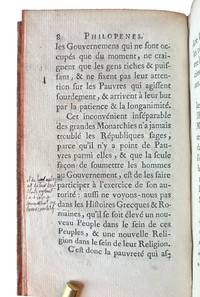 8 PHILOPENES.
les Gouvernemens qui ne sont oc-
cupés que du moment, ne crai-
gnent que les gens riches & puis-
sans, & ne fixant pas leur atten-
tion sur les Pauvres qui agissent
sourdement, & arrivent à leur but
par la patience & la longanimité.
Cet inconvénient inséparable
des grandes Monarchies n'a jamais
troublé les Républiques sages,
parce qu'il n'y a point de Pau-
vres parmi elles, & que la seule
façon de soumettre les hommes
au Gouvernement, est de les faire
participer à l'exercice de son au-
torité: aussi ne voyons-nous pas
dans les Histoires Grecques & Ro-
maines, qu'il se soit élevé un nou-
veau Peuple dans le sein de ces
Peuples, & une nouvelle Reli-
gion dans le sein de leur Religion.
C'est donc la pauvreté qui as-